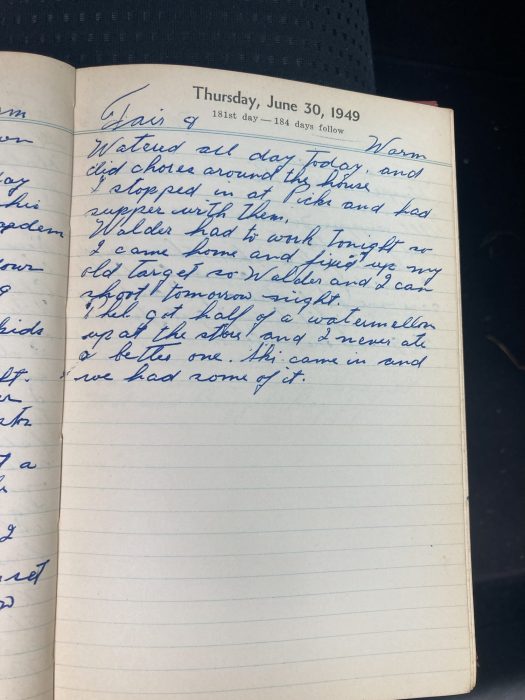 Thursday, June 30, 1949
181st day — 184 days follow
Fair & Warm
Watered all day today, and
did chores around the house
I stopped in at Picks and had
supper with them.
Walder had to work tonight so
I came home and fixed up my
old target so Walder and I can
shoot tomorrow night.
got half of a watermellon
up at the store and I never ate
a better one. came in and
we had some of it.